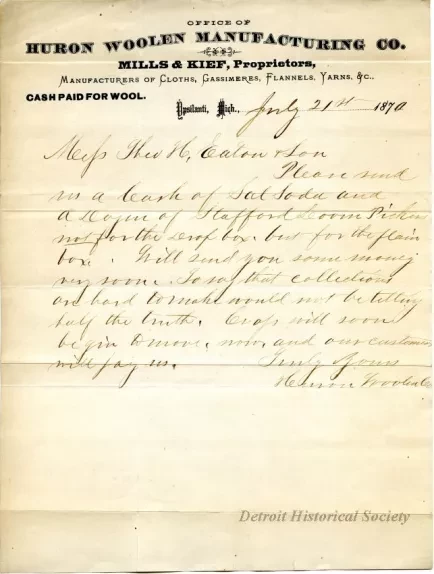 OFFICE OF
HURON WOOLEN MANUFACTURING CO.
MILLS & KIEF, Proprietors,
MANUFACTURERS OF CLOTHS, CASSIMERES, FLANNELS, YARNS, &C.
CASH PAID FOR WOOL.
Ypsilanti, Mich., July 21st 1870
Mess Theo H, Eaton & Son
Please send
us a Cask of Sal Soda and
a Dozen of Stafford Loom Pickers
not for the drop box. but for the plain
box. Will send you some money
very soon. To say that collections
are hard to make would not be telling
half the truth. Crops will soon
begin to move, now, and our customers
will pay us. Truly Yours
Huron Woolen Co
Detroit Historical Society